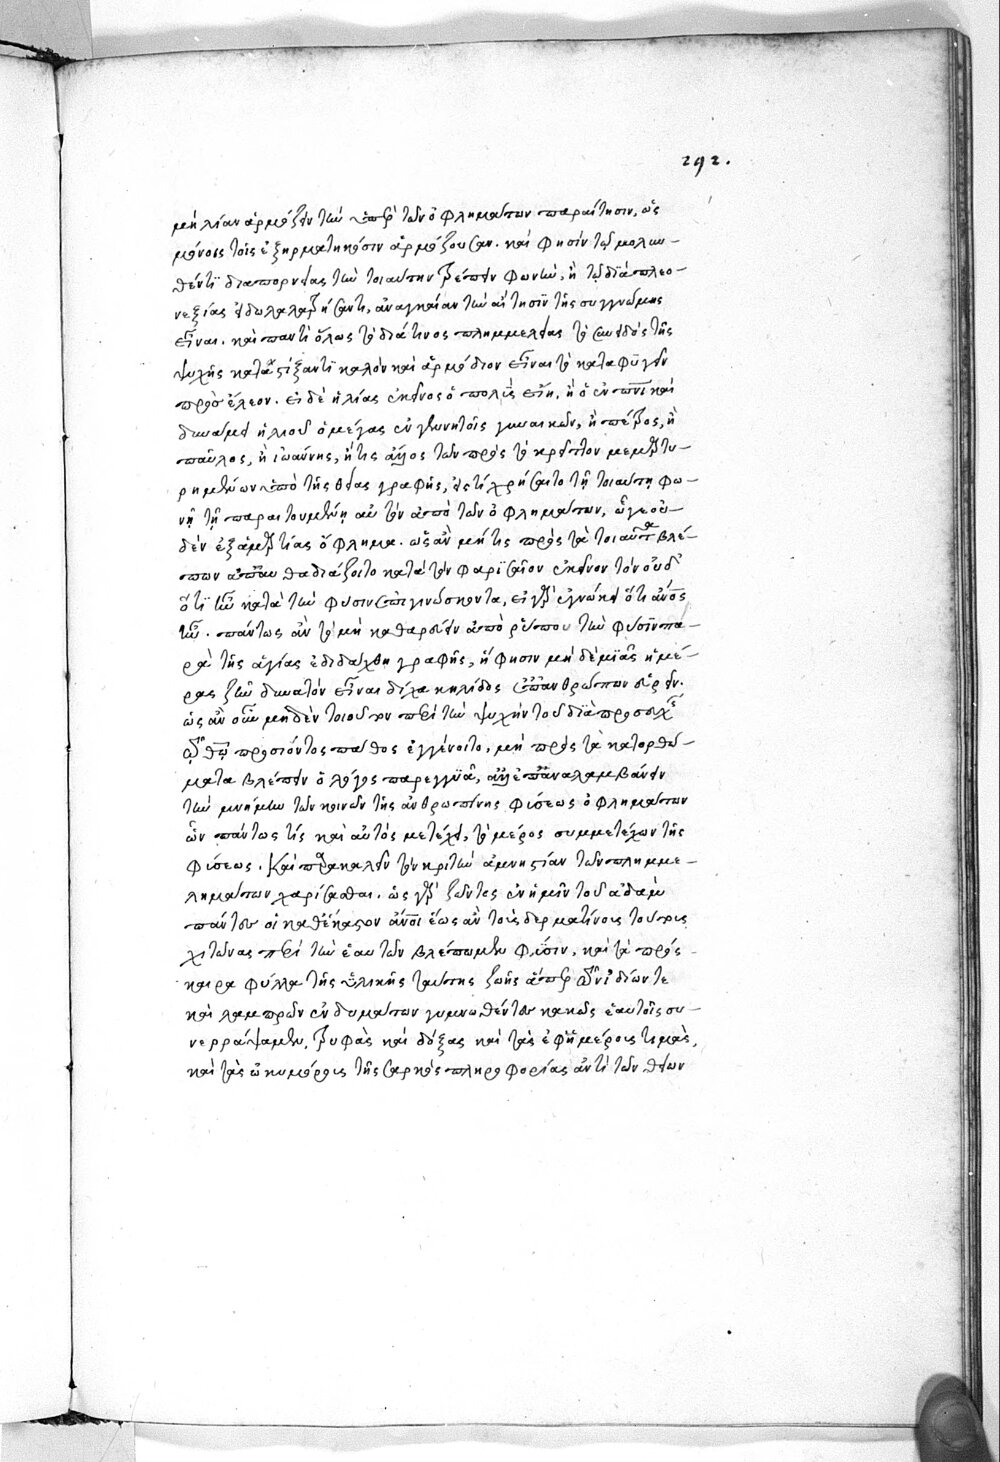 292.
μὴ λίαν ἁρμόζειν τὴν ὑπὲρ τῶν ὀφλημάτων παραίτησιν, ὡς
μόνοις τοῖς ἐξηρματηκόσιν ἁρμόζουσαν. καὶ φησὶν τῷ μολυν-
θέντι διαπορνείας τὴν τοιαύτην πρέπειν φωνὴν, ἢ τῷ διὰ πλεο-
νεξίας εἰδωλολατρήσαντι, ἀναγκαίαν τὴν αἴτησιν τῆς συγγνώμης
εἶναι. καὶ παντὶ ὅλως τῷ διά τινος πλημμελείας τὸ συνειδὸς τῆς
ψυχῆς καταστίξαντι καλὸν καὶ ἁρμόδιον εἶναι τὸ καταφυγεῖν
πρὸς ἔλεον. εἰ δὲ ἡλίας ἐκεῖνος ὁ πολὺς εἴη, ἢ ὁ ἐν πνι καὶ
δυνάμει ἡλιοῦ ὁ μέγας ἐν γεννητοῖς γυναικῶν, ἢ πέτρος, ἢ
παῦλος, ἢ ἰωάννης, ἤ τις ἄλλος τῶν πρὸς τὸ κρεῖττον μεμαρτυ-
ρημένων ὑπὸ τῆς θείας γραφῆς, εἰς τί χρήσαιτο τῇ τοιαύτῃ φω-
νῇ τῇ παραιτουμένῃ αὐτὸν ἀπὸ τῶν ὀφλημάτων, ᾧγε οὐ-
δὲν ἐξ ἁμαρτίας ὄφλημα. ὡς ἂν μή τις πρὸς τὰ τοιαῦτα βλέ-
πων ἀπαυθαδιάζοιτο κατὰ τὸν φαρισαῖον ἐκεῖνον τὸν οὐδ
ὅτι ἦν κατὰ τὴν φύσιν ἐπιγινώσκοντα, εἰ γὰρ ἐγνώκει ὅτι ἄνος
ἦν. πάντως ἂν τὸ μὴ καθαρεύειν ἀπὸ ῥύπου τὴν φύσιν πα-
ρὰ τῆς ἁγίας ἐδιδάχθη γραφῆς, ἥ φησιν μὴ δὲ μιᾶς ἡμέ-
ρας ζωὴν δυνατὸν εἶναι δίχα κηλίδος ἐπ' ἀνθρώπων εὑρεῖν.
ὡς ἂν οὖν μηδὲν τοιοῦτον περὶ τὴν ψυχὴν τοῦ διὰ προσευχῆς
τῷ θῷ προσιόντος πάθος ἐγγένοιτο, μὴ πρὸς τὰ κατορθώ-
ματα βλέπειν ὁ λόγος παρεγγυᾷ, ἀλλ' ἐπαναλαμβάνειν
τὴν μνήμην τῶν κοινῶν τῆς ἀνθρωπίνης φύσεως ὀφλημάτων
ὧν πάντως τίς καὶ αὐτὸς μετέχει, τὸ μέρος συμμετέχων τῆς
φύσεως. Καὶ παρακαλεῖν τὸν κριτὴν ἀμνηστίαν τῶν πλημμε-
λημάτων χαρίσασθαι. ὡς γὰρ ζῶντες ἐν ἡμῖν τοῦ ἀδαμ
πάντες οἱ καθέκαστον ἄνοι ἕως ἂν τοὺς δερματίνους τούτους
χιτῶνας περὶ τὴν ἑαυτῶν βλέπωμεν φύσιν, καὶ τὰ πρός-
καιρα φύλλα τῆς ὑλικῆς ταύτης ζωῆς ἅπερ τῶν ἰδίων τε
καὶ λαμπρῶν ἐνδυμάτων γυμνωθέντες κακῶς ἑαυτοῖς συ-
νερράψαμεν, τρυφὰς καὶ δόξας καὶ τὰς ἐφημέρους τιμὰς,
καὶ τὰς ὠκυμόρους τῆς σαρκὸς πληροφορίας ἀντὶ τῶν θείων